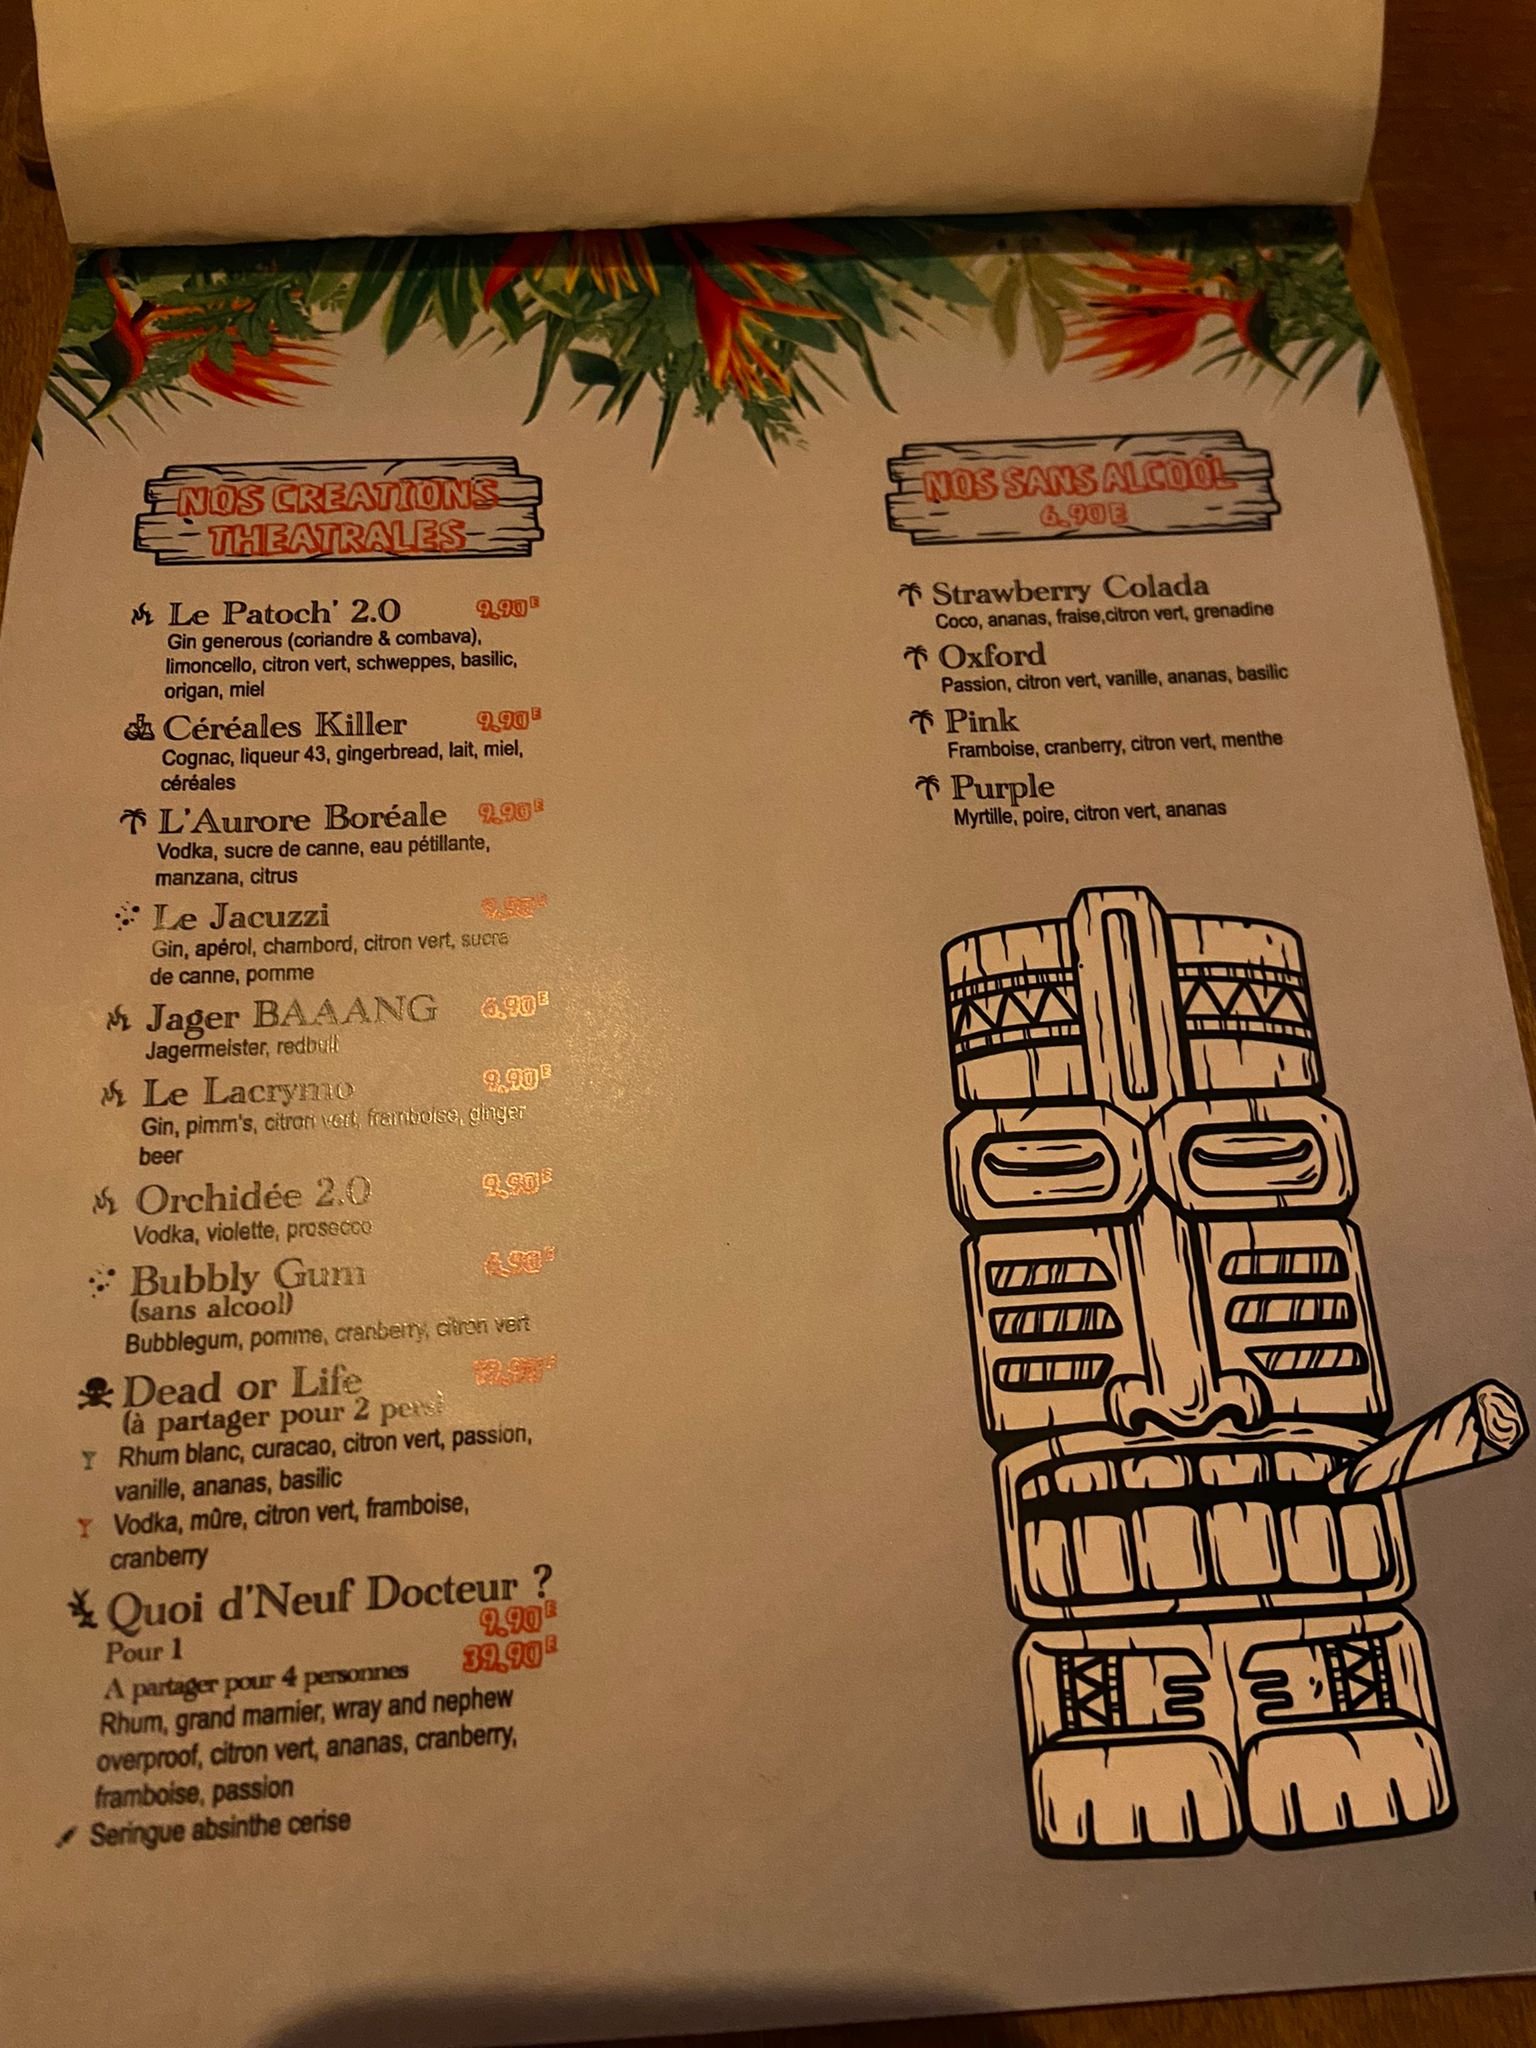 NOS CREATIONS
THEATRALES
Le Patoch' 2.0 9.90E
Gin generous (coriandre & combava),
limoncello, citron vert, schweppes, basilic,
origan, miel
Céréales Killer 9.90E
Cognac, liqueur 43, gingerbread, lait, miel,
céréales
L'Aurore Boréale 9.90E
Vodka, sucre de canne, eau pétillante,
manzana, citrus
Le Jacuzzi
Gin, apérol, chambord, citron vert, sucre
de canne, pomme
Jager BAAANG 6.90E
Jagermeister, redbull
Le Lacrymo 9.90E
Gin, pimm's, citron vert, framboise, ginger
beer
Orchidée 2.0 9.90E
Vodka, violette, prosecco
Bubbly Gum 6.90E
(sans alcool)
Bubblegum, pomme, cranberry, citron vert
Dead or Life
(à partager pour 2
Rhum blanc, curacao, citron vert, passion,
vanille, ananas, basilic
Vodka, mûre, citron vert, framboise,
cranberry
Quoi d'Neuf Docteur ?
Pour 1 9.90E
A partager pour 4 personnes 39.90E
Rhum, grand marnier, wray and nephew
overproof, citron vert, ananas, cranberry,
framboise, passion
Seringue absinthe cerise
NOS SANS ALCOOL
6.90E
Strawberry Colada
Coco, ananas, fraise,citron vert, grenadine
Oxford
Passion, citron vert, vanille, ananas, basilic
Pink
Framboise, cranberry, citron vert, menthe
Purple
Myrtille, poire, citron vert, ananas